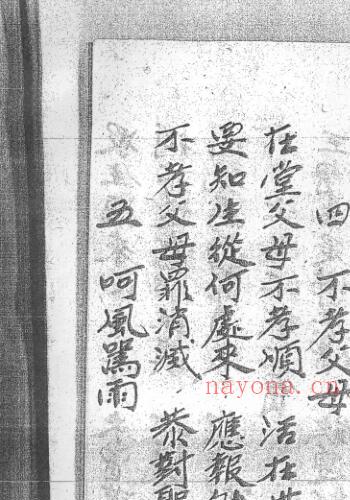 四 不孝父母
在堂父母不孝順 活在
要知生從何處來 應報
不孝父母罪消滅 恭對聖
五 呵風罵雨
nayona.cn.com